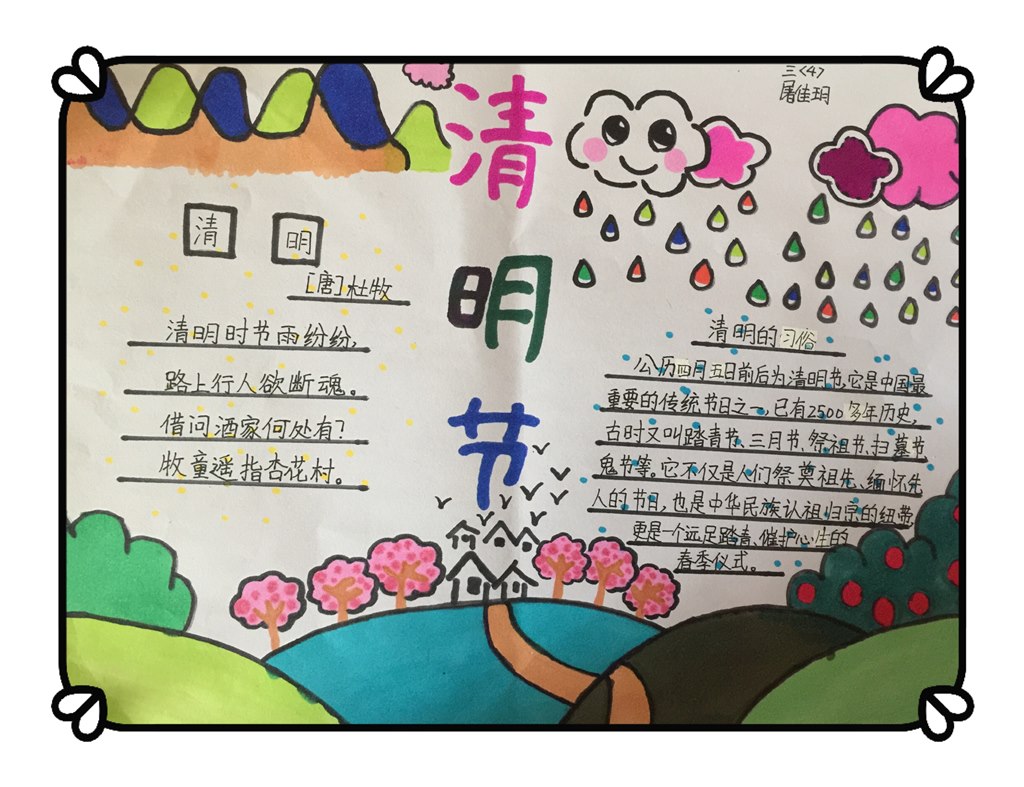 三<4>
屠佳玥
清明节
清明
[唐]杜牧
清明时节雨纷纷,
路上行人欲断魂。
借问酒家何处有?
牧童遥指杏花村。
清明的习俗
公历四月五日前后为清明节,它是中国最
重要的传统节日之一,已有2500多年历史,
古时又叫踏青节、三月节、祭祖节、扫墓节
鬼节等。它不仅是人们祭奠祖先、缅怀先
人的节日,也是中华民族认祖归宗的纽带,
更是一个远足踏青、催护心生的
春季仪式。